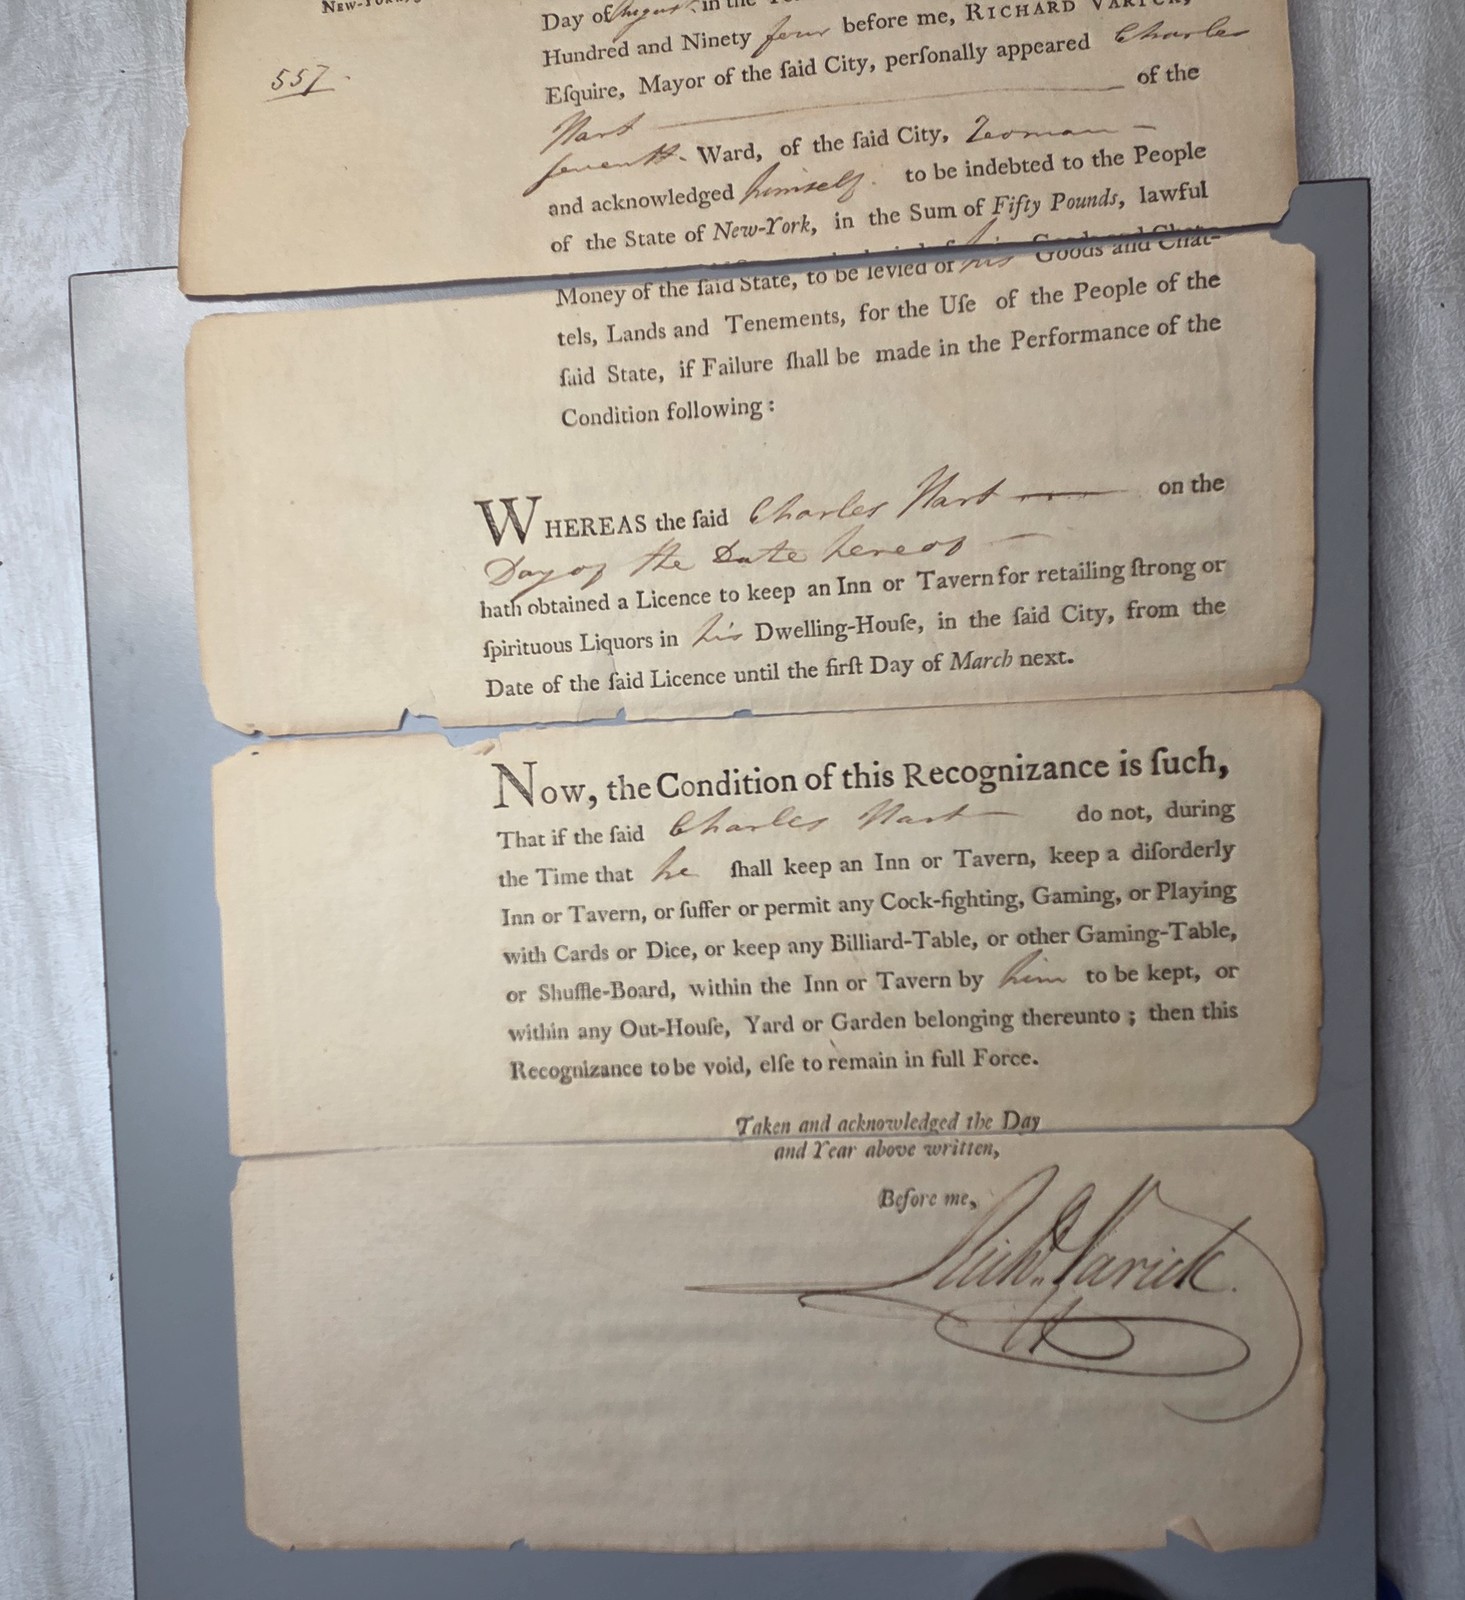 NEW-YORK,
Day of August in the
Hundred and Ninety four before me, RICHARD VARICK,
557.
Eſquire, Mayor of the ſaid City, perſonally appeared Charles
Hart of the
ſeventh Ward, of the ſaid City, Yeoman
and acknowledged himself to be indebted to the People
of the State of New-York, in the Sum of Fifty Pounds, lawful
Money of the ſaid State, to be levied of his Goods and Chat-
tels, Lands and Tenements, for the Uſe of the People of the
ſaid State, if Failure ſhall be made in the Performance of the
Condition following:
WHEREAS the ſaid Charles Hart on the
Day of the Date hereof
hath obtained a Licence to keep an Inn or Tavern for retailing ſtrong or
ſpirituous Liquors in his Dwelling-Houſe, in the ſaid City, from the
Date of the ſaid Licence until the firſt Day of March next.
Now, the Condition of this Recognizance is ſuch,
That if the ſaid Charles Hart do not, during
the Time that he ſhall keep an Inn or Tavern, keep a diſorderly
Inn or Tavern, or ſuffer or permit any Cock-fighting, Gaming, or Playing
with Cards or Dice, or keep any Billiard-Table, or other Gaming-Table,
or Shuffle-Board, within the Inn or Tavern by him to be kept, or
within any Out-Houſe, Yard or Garden belonging thereunto; then this
Recognizance to be void, elſe to remain in full Force.
Taken and acknowledged the Day
and Year above written,
Before me,
Richd. Varick